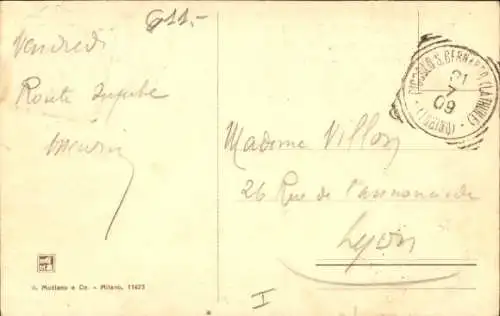 611.-
Vendredi
Route superbe
PICCOLO S. BERNARDO (LA THUILE)
21
7
09
(TORINO)
Madame Villon
26 Rue de l'annonciade
Lyon
I
Modiano e Co. - Milano. 11623